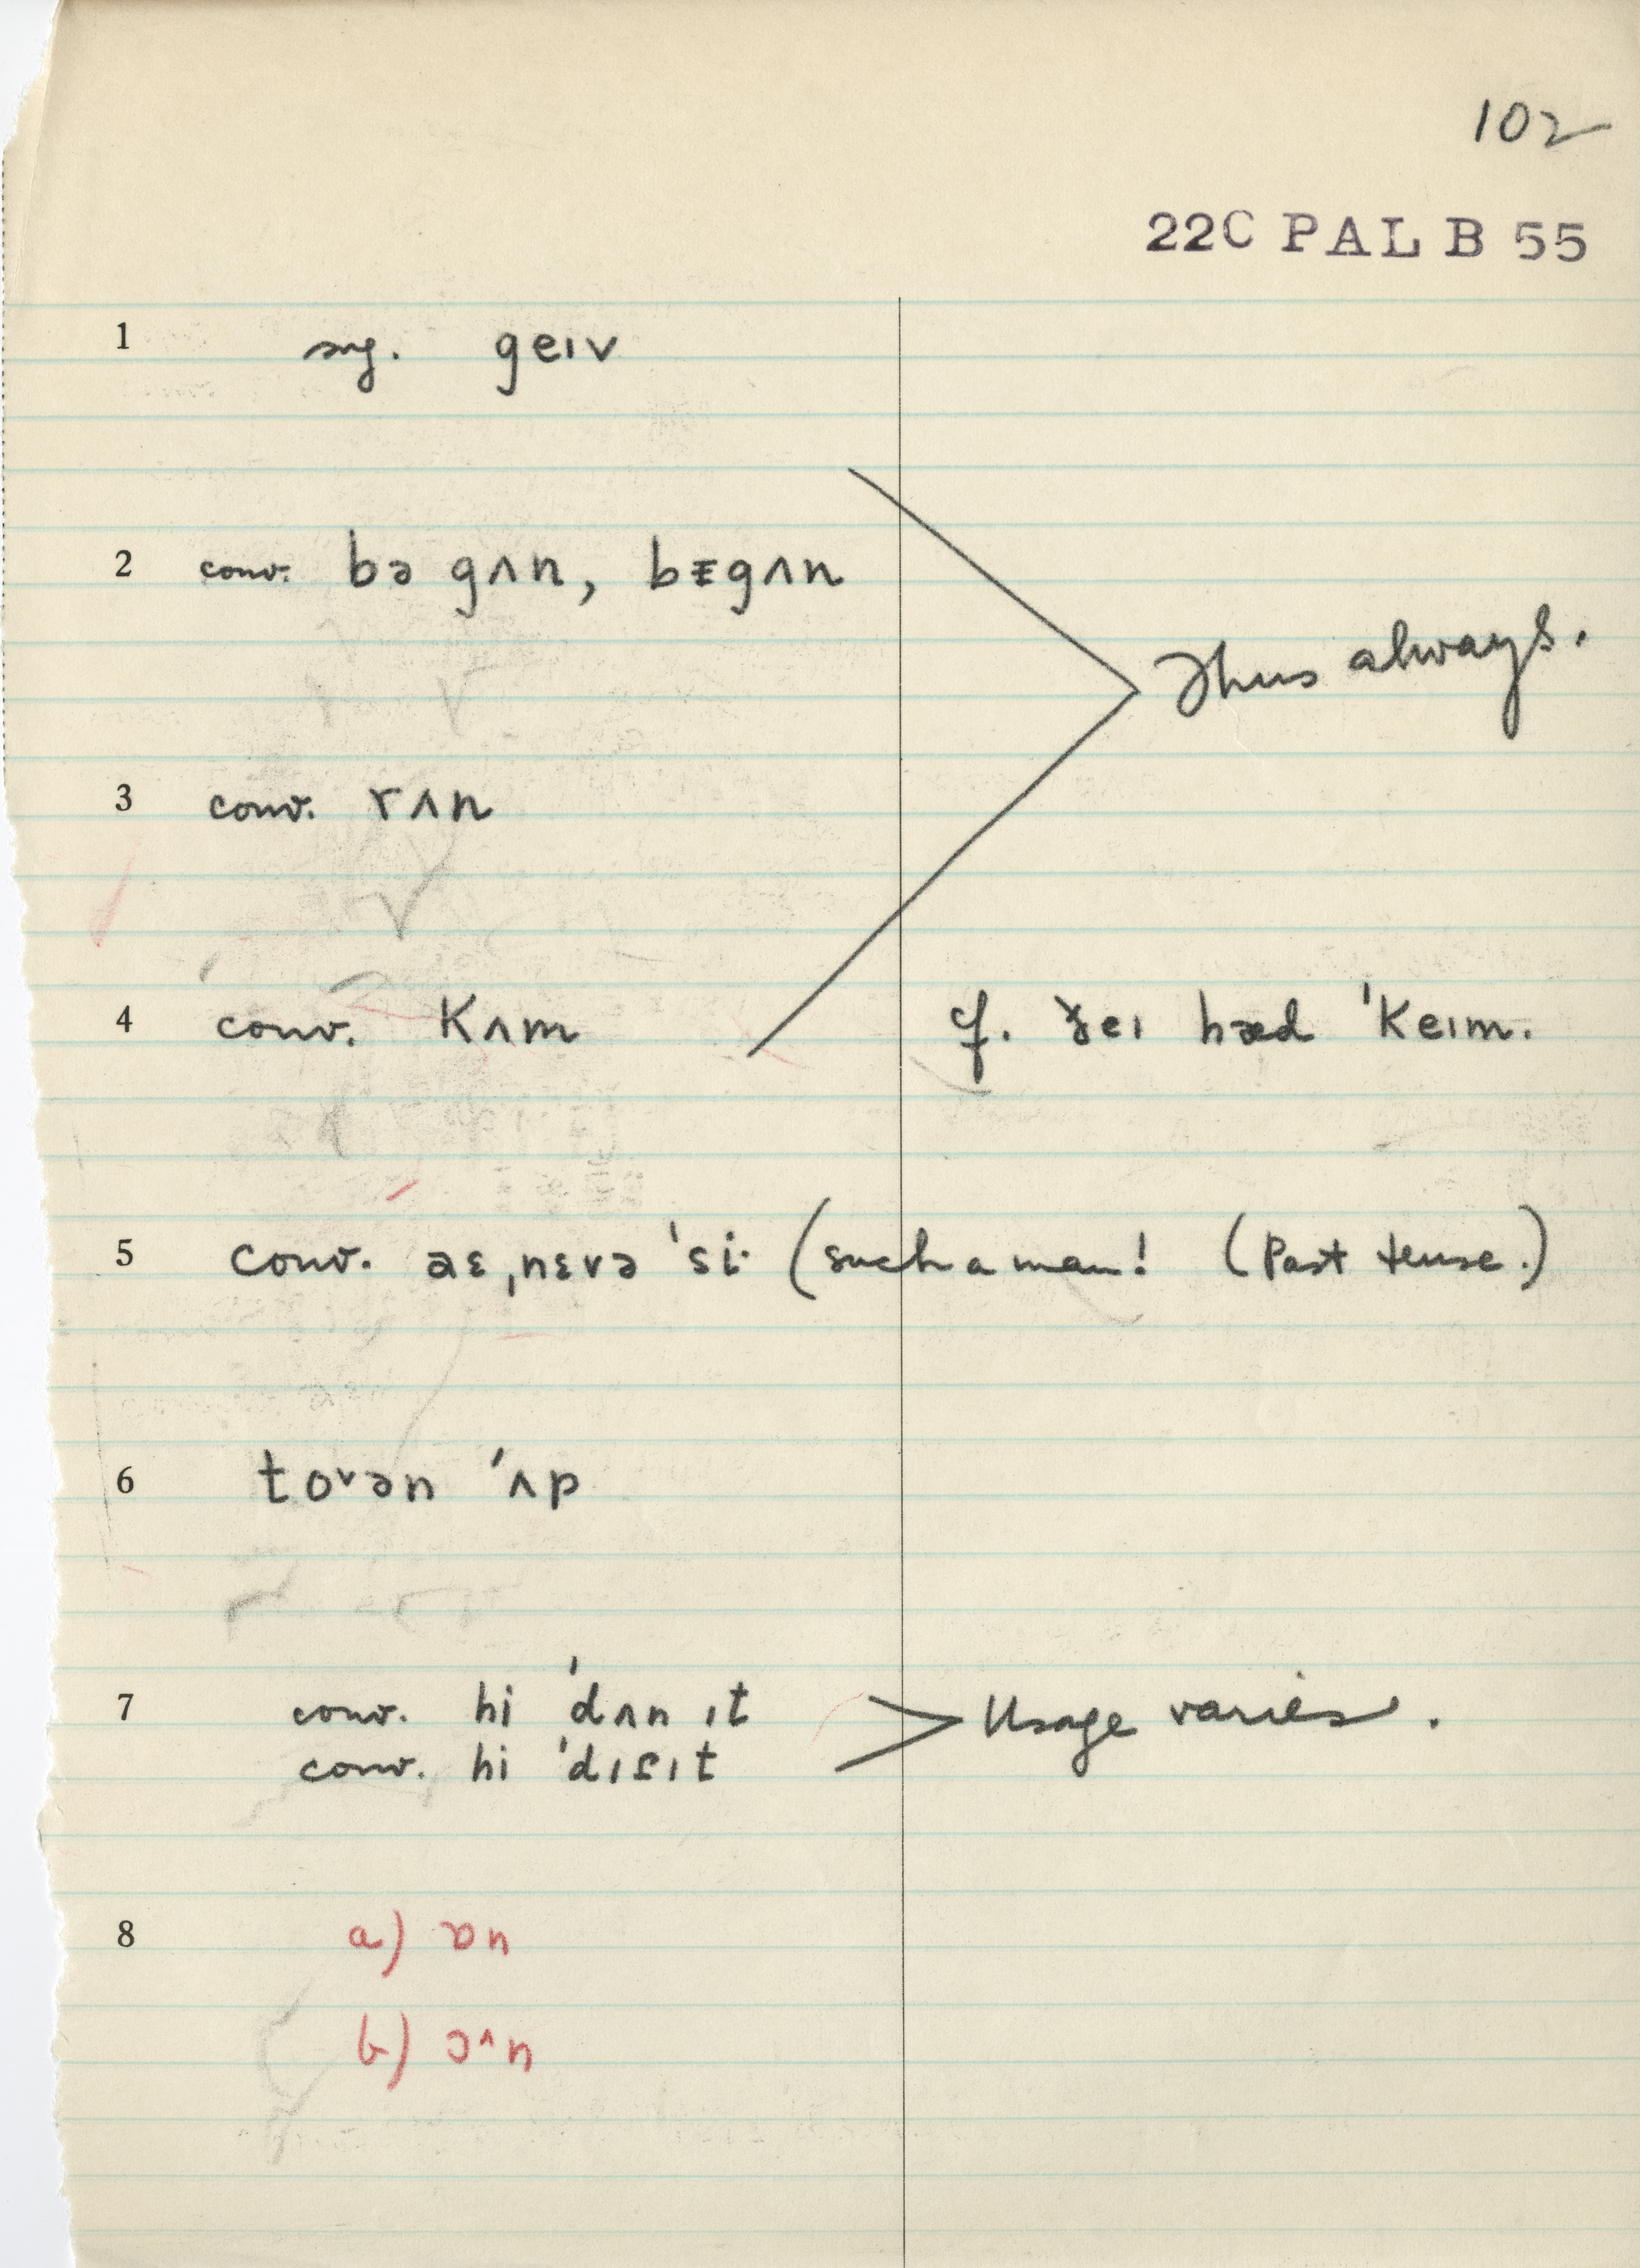 102
22C PAL B 55
1 sug. geɪv
2 conv. bə gʌn, bɪgʌn
Thus always.
3 conv. rʌn
4 conv. Kʌm cf. ðeɪ hæd 'Keɪm.
5 conv. aɛ ˌnɛvə 'si· (such a man! (Past tense.)
6 toᵛən 'ʌp
7 conv. hi 'dʌn ɪt Usage varies.
conv. hi 'dɪf ɪt
8 a) ɒn
b) ɔ^n